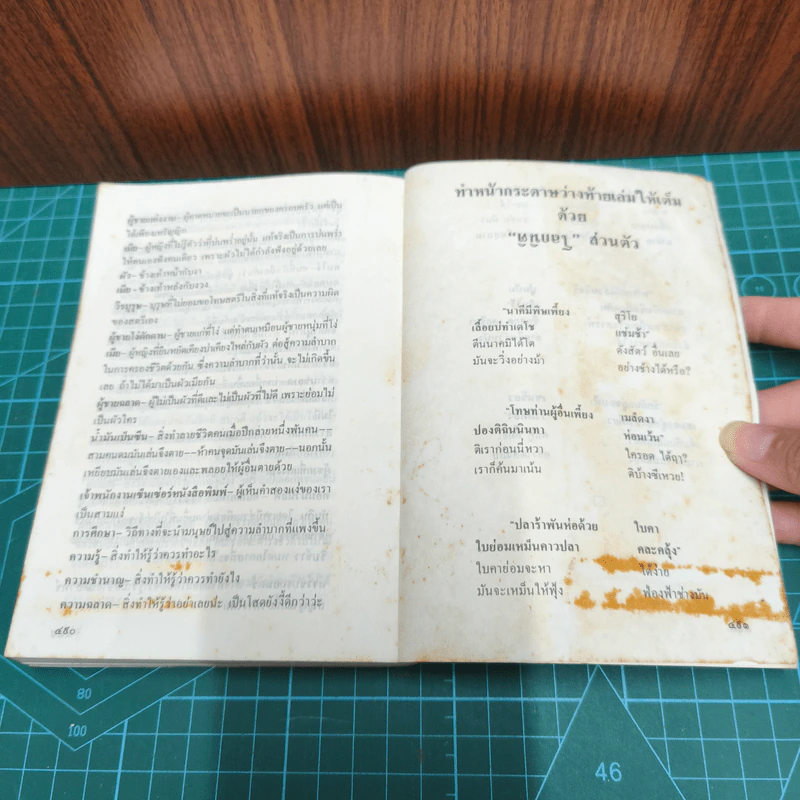 ผู้ชายแต่งงาน– ผู้คาดหมายจะเป็นนายกของครอบครัว แต่เป็น
ได้เพียงเหรัญญิก
เมีย– ผู้หญิงที่ไม่รู้ตัวว่าที่บ่นพร่ำอยู่นั้น แท้จริงเป็นการบ่นพร่ำ
ให้ตนเองฟังคนเดียว เพราะผัวไม่ได้กำลังฟังอยู่ด้วยเลย
ผัว– ช้างเท้าหน้ากับงา
เมีย– ช้างเท้าหลังกับงวง
วีรบุรุษ– บุรุษที่ไม่ยอมขอโทษสตรีในสิ่งที่แท้จริงเป็นความผิด
ของสตรีเอง
ผู้ชายโง่ดักดาน– ผู้ชายแก่ที่โง่ แต่ทำตนเหมือนผู้ชายหนุ่มที่โง่
เมีย– ผู้หญิงที่ยืนหยัดเคียงบ่าเคียงไหล่กับผัว ต่อสู้ความลำบาก
ในการครองชีวิตด้วยกัน ซึ่งความลำบากที่ว่านั้น จะไม่เกิดขึ้น
เลย ถ้าไม่ได้มาเป็นผัวเมียกัน
ผู้ชายฉลาด– ผู้ไม่เป็นผัวที่ดีและไม่เป็นผัวที่ไม่ดี เพราะย่อมไม่
เป็นผัวใคร
น้ำมันเบ็นซิน– สิ่งทำลายชีวิตคนเมื่อปีกลายหนึ่งพันคน––
สามคนดมมันเล่นจึงตาย––ห้าคนจุดมันเล่นจึงตาย––นอกนั้น
เหยียบมันเล่นจึงตายเองและพลอยให้ผู้อื่นตายด้วย
เจ้าพนักงานเซ็นเซ่อร์หนังสือพิมพ์– ผู้เห็นคำสองแง่ของเรา
เป็นสามแง่
การศึกษา– วิถีทางที่จะนำมนุษย์ไปสู่ความลำบากที่แพงขึ้น
ความรู้– สิ่งทำให้รู้ว่าควรทำอะไร
ความชำนาญ– สิ่งทำให้รู้ว่าควรทำยังไง
ความฉลาด– สิ่งทำให้รู้ว่าอย่าเลยปะ เป็นโสดยังงี้ดีกว่าว่ะ
๔๕๐
ทำหน้ากระดาษว่างท้ายเล่มให้เต็ม
ด้วย
"โลกนิติ" ส่วนตัว
"นาคีมีพิษเพี้ยง สุริโย
เลื้อยบ่ทำเดโช แช่มช้า"
ตีนนาคมิได้โต ดังสัตว์ อื่นเลย
มันจะวิ่งอย่างม้า อย่างช้างได้หรือ?
"โทษท่านผู้อื่นเพี้ยง เมล็ดงา
ปองติฉินนินทา ห่อนเว้น"
ติเราก่อนนี่หวา ใครอด ได้ฤา?
เราก็ค้นมาเน้น ติบ้างซีเหวย!
"ปลาร้าพันห่อด้วย ใบคา
ใบย่อมเหม็นคาวปลา คละคลุ้ง"
ใบคาย่อมจะหา ได้ง่าย
มันจะเหม็นให้ฟุ้ง ฟ่องฟ้าช่างมัน
๔๕๑
80
100
46